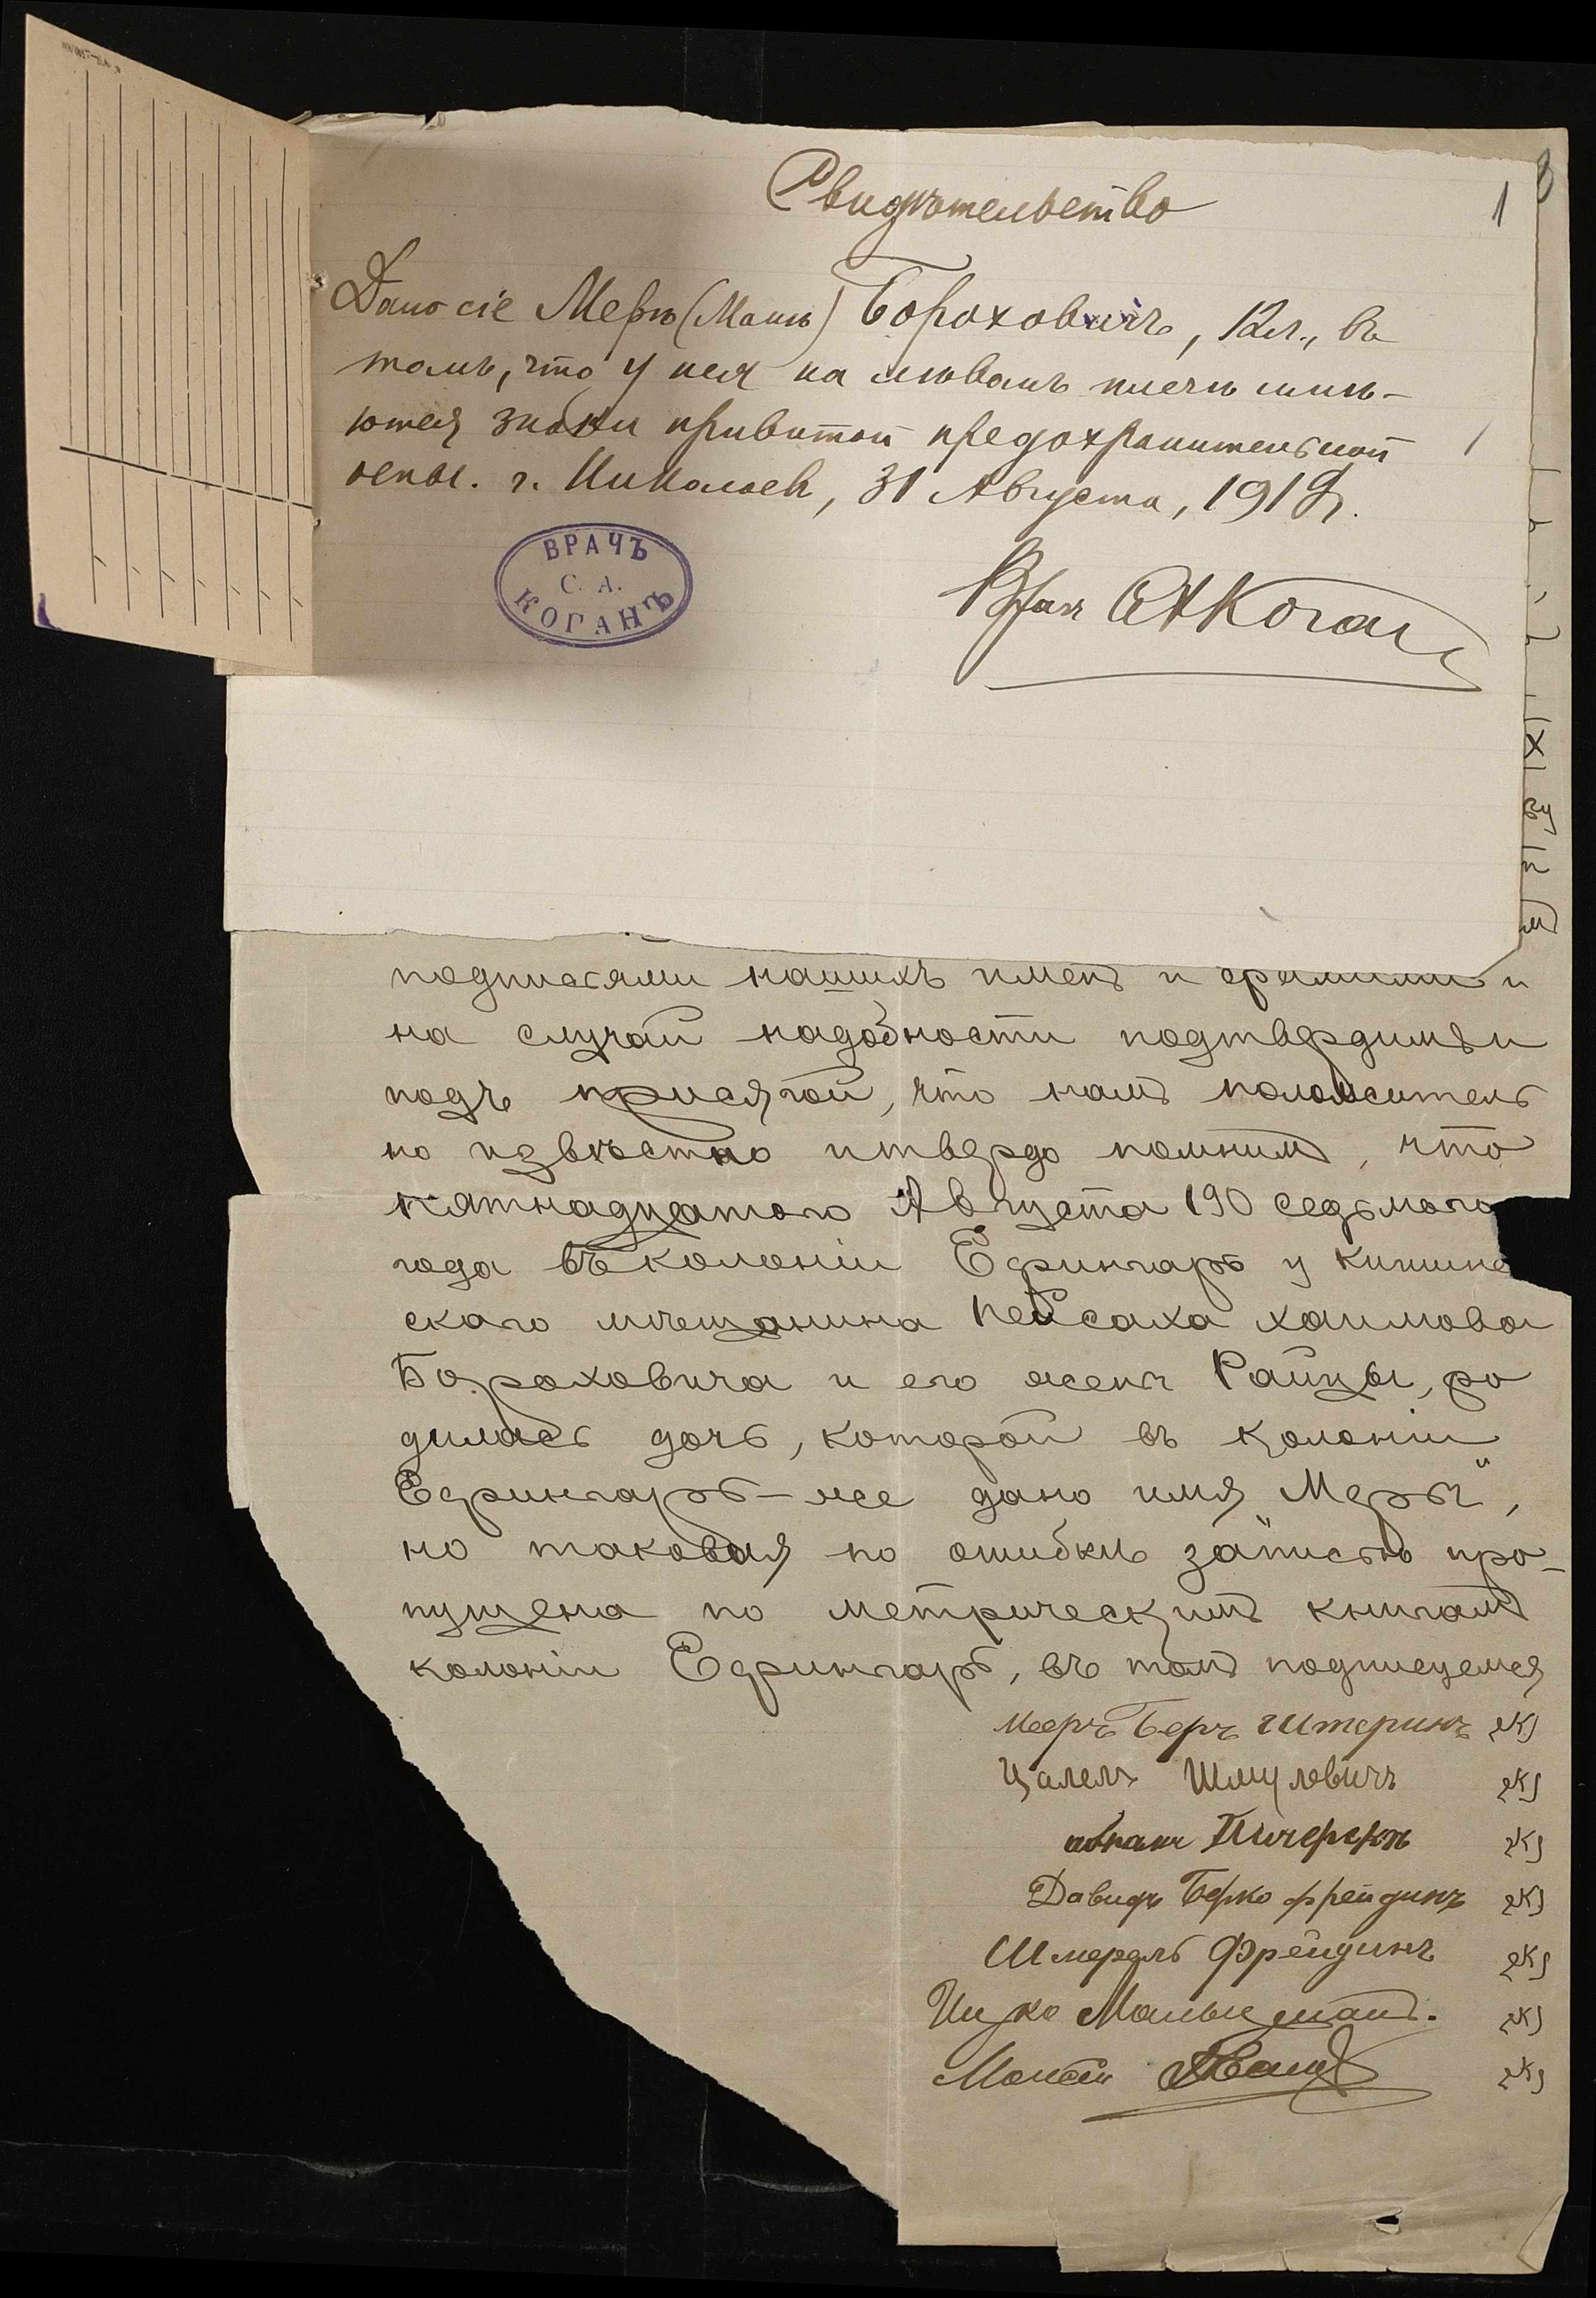 1 8
Свидѣтельство
Дано сіе Мерѣ (Маня) Бороховичъ, 12 л., въ
томъ, что у нея на лѣвомъ плечѣ имѣ-
ются знаки привитой предохранительной
оспы. г. Николаевъ, 31 Августа, 191 г.
ВРАЧЪ
С. А.
КОГАНЪ
Врач САКоган
подписями нашихъ имен и фамилии и
на случай надобности подтвердимъ и
подъ присягой, что намъ положитель
но извѣстно и твердо помнимъ, что
пятнадцатого Августа 190 седьмого
года въ колоніи Ефингаръ у кишине
скаго мѣщанина Пейсаха Хаимова
Бороховича и его жены Райцы, ро
дилась дочь, которой въ колоніи
Ефингаръ-же дано имя Меры",
но таковая по ошибкѣ записью про-
пущена по метрическимъ книгамъ
колоніи Ефингаръ, въ томъ подписуемся
Мееръ Беръ Штеринъ
Цалелъ Шмулевичъ
Давидъ Берко Фрейдинъ
Шмерель Фрейдинъ
Ицко
Моисей